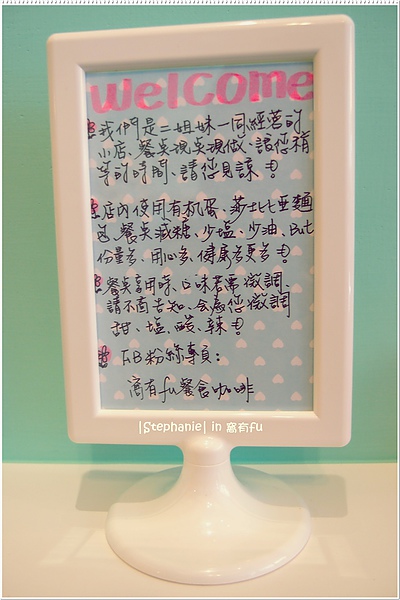 welcome
我們是二姐妹一同經營的
小店、餐点現点現做、讓您稍
等的時間、請您見諒!
店內使用有机蛋、莎比亞麵
包、餐点減糖、少塩、少油、But
份量多、用心多、健康者更多!
餐点享用時、口味若需微調、
請不吝告知、会為您微調
甜、塩、酸、辣!
FB粉絲專頁:
窩有fu餐食咖啡
|Stephanie| in 窩有fu